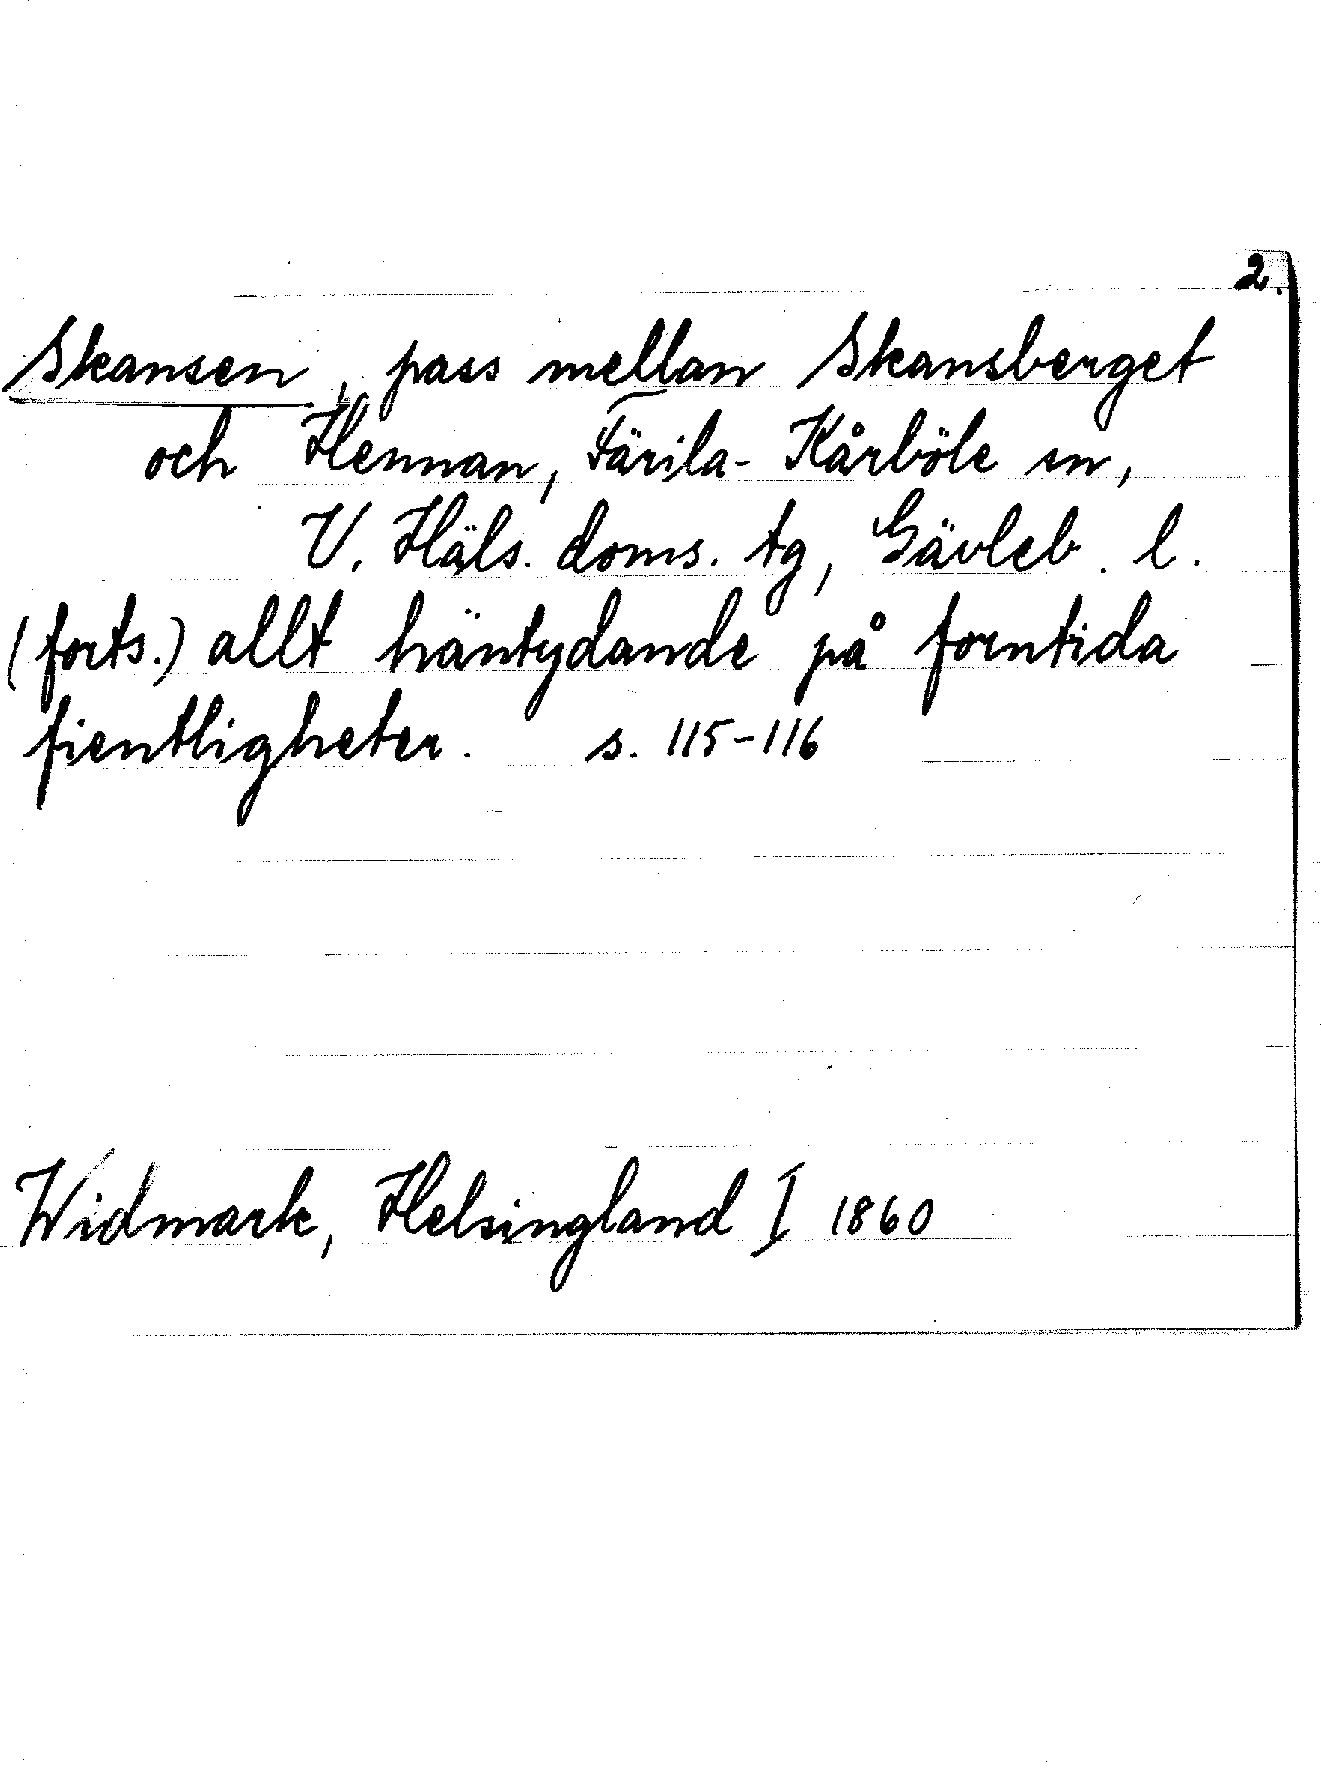 2.
Skansen, pass mellan Skansberget
och Hennan, Färila-Kårböle sn,
V. Häls. doms. tg, Gävleb. l.
(forts.) allt häntydande på forntida
fientligheter. s. 115-116
Widmark, Helsingland I 1860